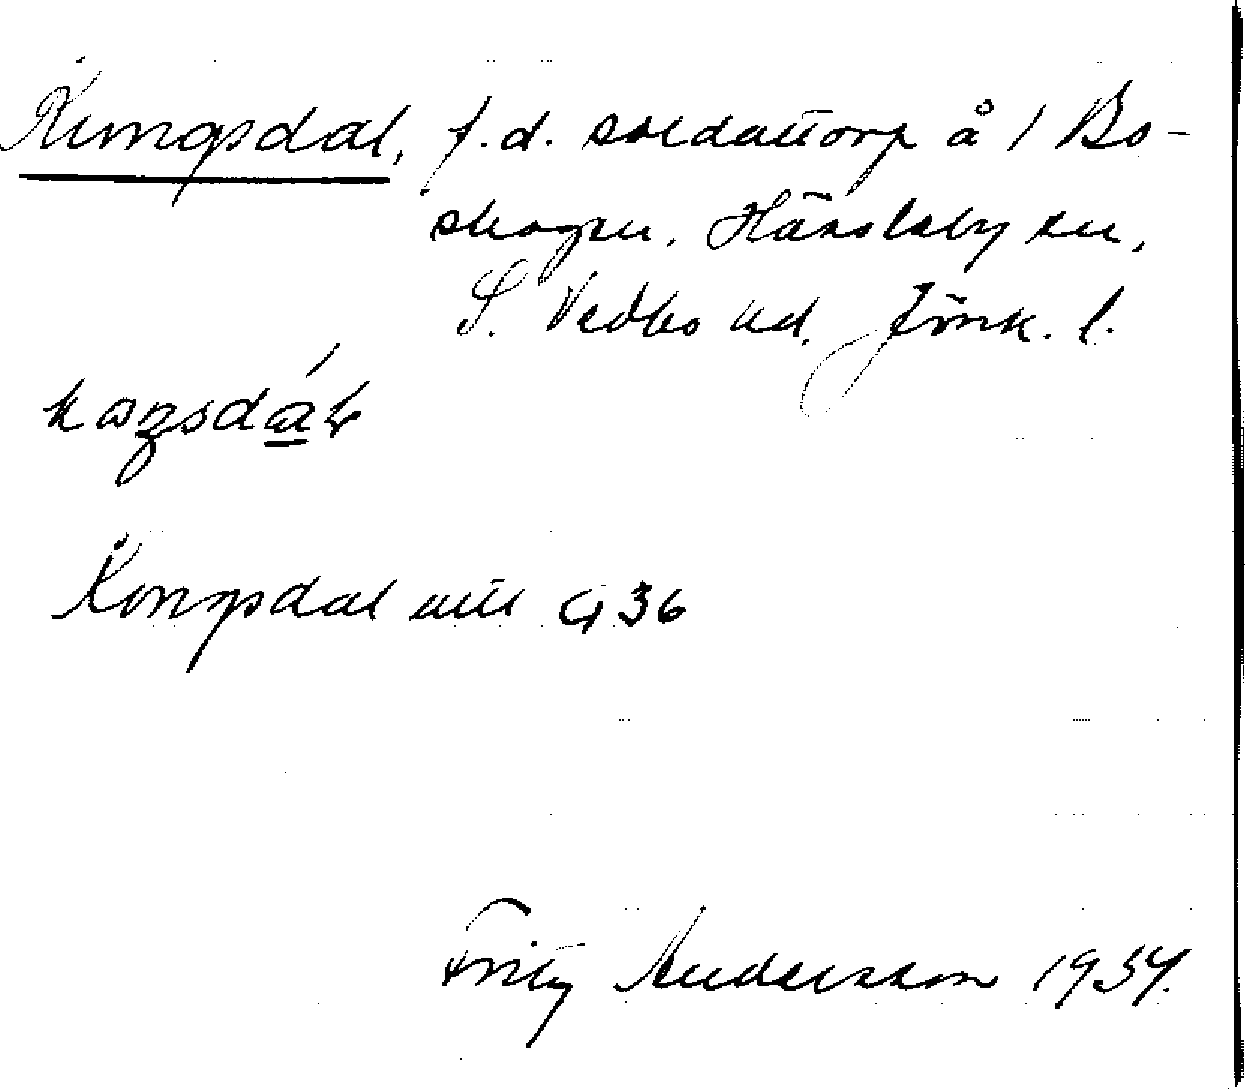 Kungsdal, f.d. soldattorp å 1 Bo-
skogen, Hässleby sn,
S. Vedbo hd. Jönk. l.
Kongsdal utt G 36
Fritz Andersson 1934.